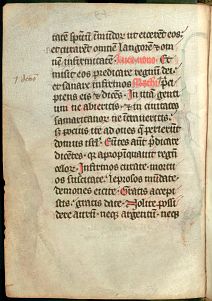 tatem spirituum immundorum ut eicerent eos:
et curarent omnem languorem et om
nem infirmitatem
misit eos predicare regnum dei:
et sanare infirmos
piens eis et dicens. In viam genti
um ne abieritis: et in civitates
samaritanorum ne
potius ite ad oves que perierunt
domus isrl. Euntes autem predicate
dicentes: quia appropinquavit regnum
celorum. Infirmos curate: mortu
os suscitate: leprosos mundate
demones eicite. Gratis accepi
stis: gratis date. Nolite possi
dere aurum: neque argentum: neque